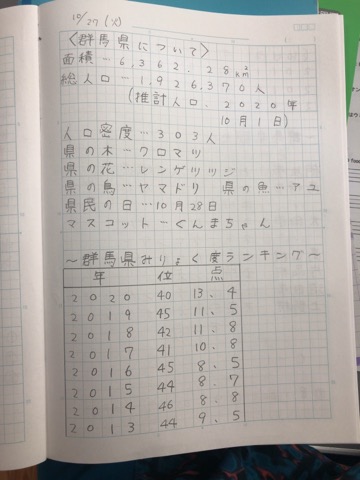 10/27(火)
〈群馬県について〉
面積…6,362.28km²
総人口…1,926,370人
(推計人口、2020年
10月1日)
人口密度…303人
県の木…クロマツ
県の花…レンゲツツジ
県の鳥…ヤマドリ 県の魚…アユ
県民の日…10月28日
マスコット…ぐんまちゃん
～群馬県みりょく度ランキング～
年 位 点
2020 40 13.4
2019 45 11.5
2018 42 11.8
2017 41 10.8
2016 45 8.5
2015 44 8.7
2014 46 8.8
2013 44 9.5